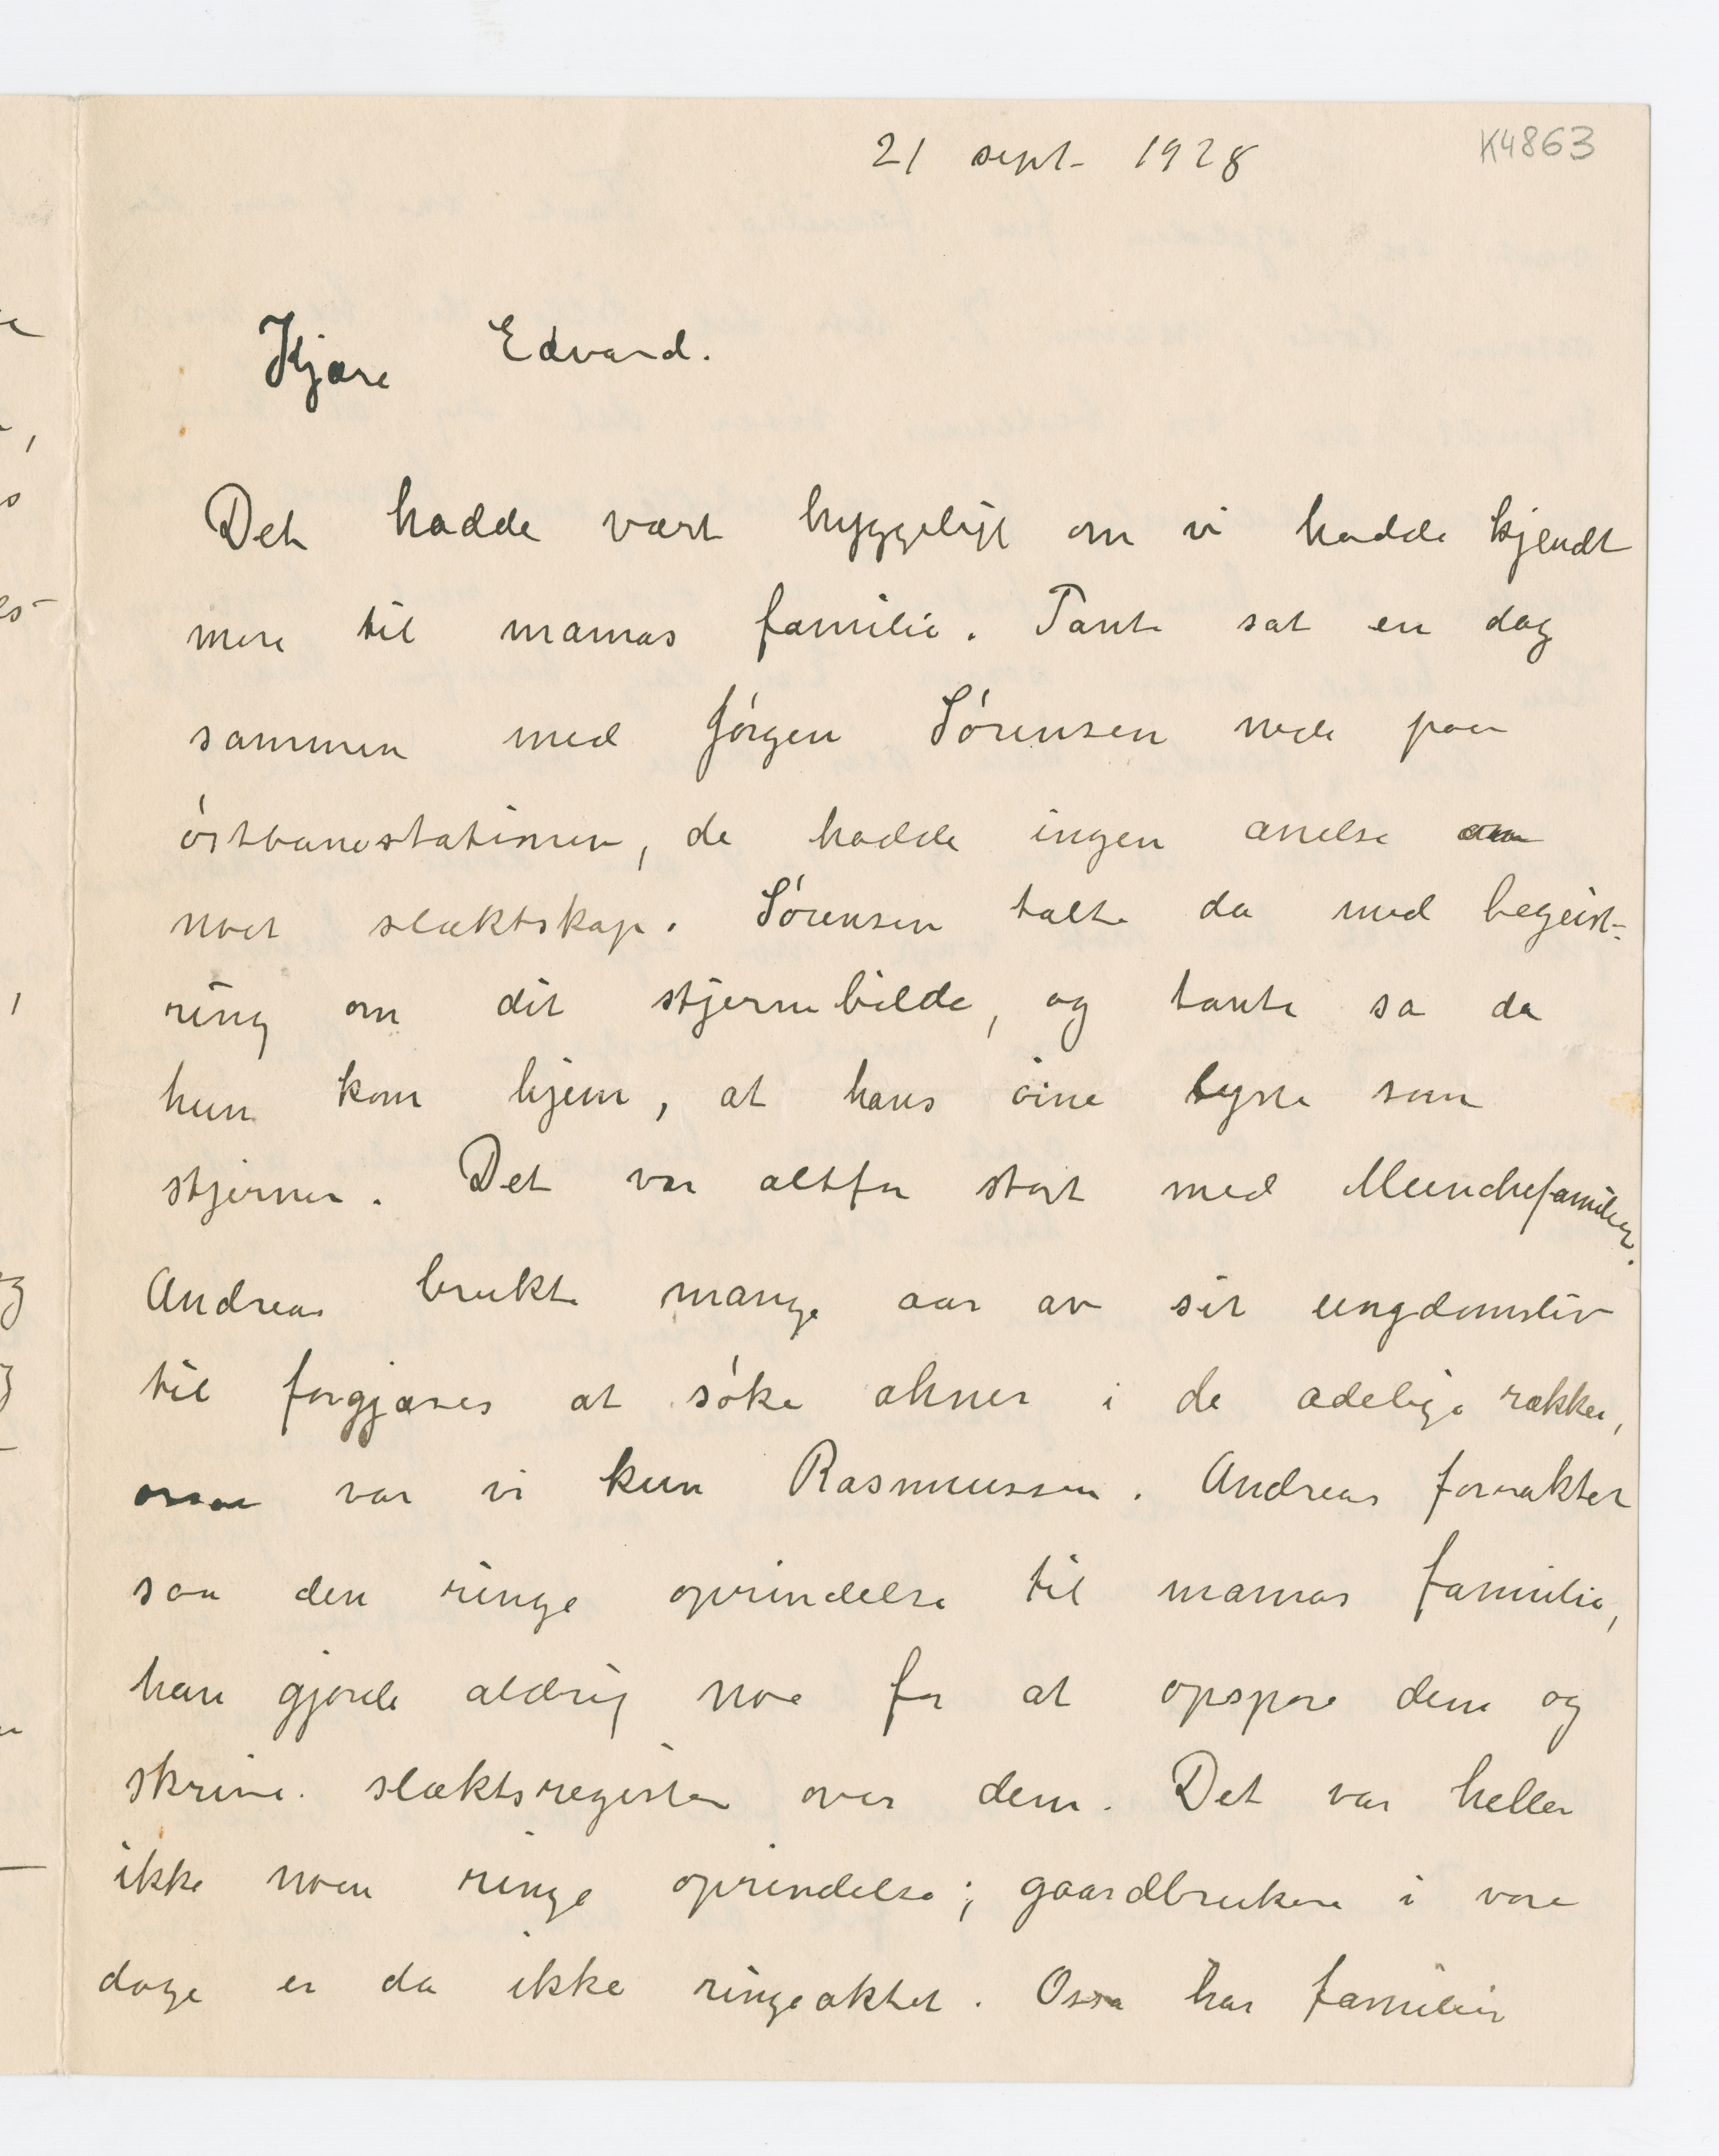 21 sept. 1928
K4863
Kjære Edvard.
Det hadde vært hyggeligt om vi hadde kjendt
mere til mamas familie. Tante sat en dag
sammen med Jörgen Sörensen nede paa
östbanestationen, de hadde ingen anelse om
noet slæktskap. Sörensen talte da med begeist-
ring om dit stjernebilde, og tante sa da
hun kom hjem, at hans öine lyste som
stjerner. Det var altfor stort med Munchefamilien.
Andreas brukte mange aar av sit ungdomsliv
til forgjæves at söke ahner i de adelige rækker,
ossaa var vi kun Rasmussen. Andreas foraktet
saa den ringe oprindelse til mamas familie,
han gjorde aldrig noe for at opspore dem og
skrive slæktsregister over dem. Det var heller
ikke noen ringe oprindelse; gaardbrukere i vore
dage er da ikke ringeaktet. Ossa har familien